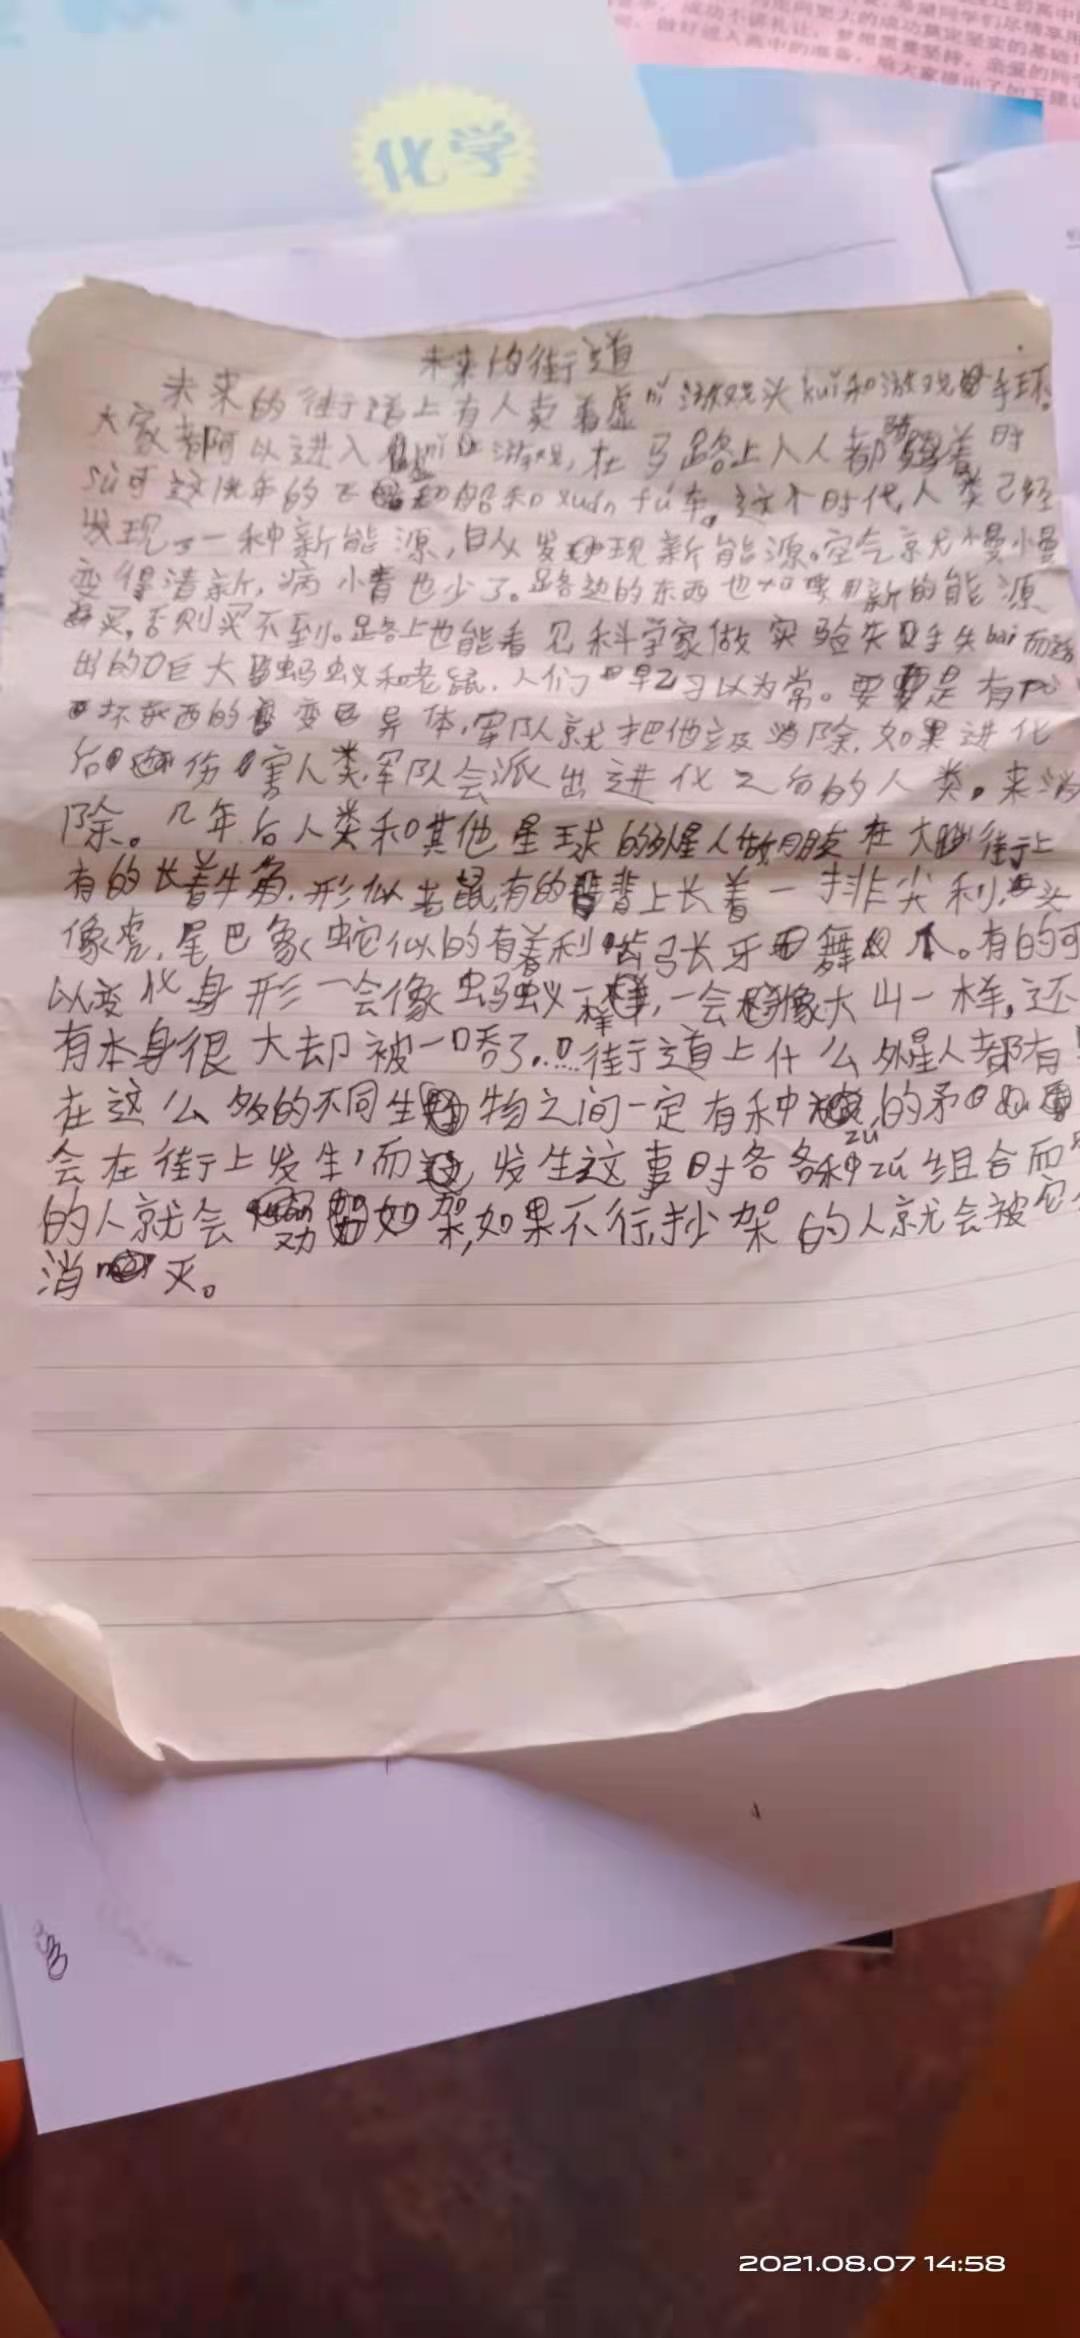 化学
未来的街道
未来的街道上有人卖着虚ni游戏头kui和游戏手环。
大家都可以进入虚ni游戏,在马路上人人都骑着时
sù可达
年的飞船和xuán fú车。这个时代,人类已经
发现了一种新能源,自从发现新能源。空气就慢慢
变得清新,病毒也少了。路边的东西也要用新的能源
买,否则买不到。路上也能看见科学家做实验失手失bai而
出的巨大蚂蚁和老鼠.人们早已习以为常。要是有
坏东西的变异体,军队就把他立及消除.如果进化
后伤害人类,军队会派出进化之后的人类。来消
除。几年后人类和其他星球的外星人做朋友在大街上
有的长着牛角.形似老鼠,有的背上长着一排尖利,头
像虎,尾巴象蛇似的有着利齿张牙舞爪。有的可
以变化身形一会像蚂蚁一样,一会像大山一样,还
有本身很大却被一口吞了..!!..街道上什么外星人都有
在这么多的不同生物之间一定有种的矛
会在街上发生,而发生这事时各各种zú组合而
的人就会劝架,如果不行,吵架的人就会被
消灭。
2021.08.07 14:58